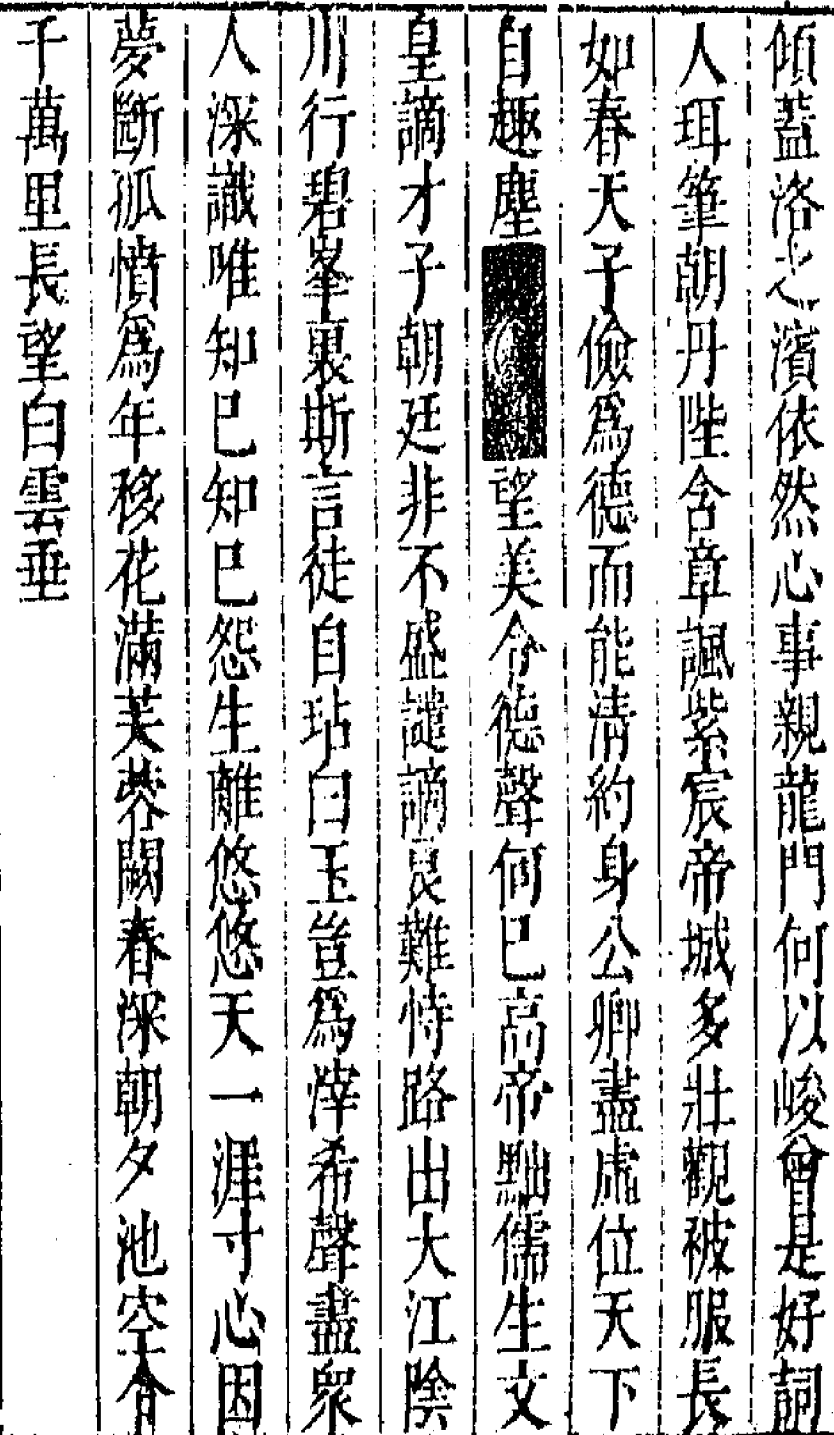 傾蓋洛之濱依然心事親龍門何以峻曾是好詞
人珥筆朝丹陛含章諷紫宸帝城多壯觀被服長
如春天子儉爲德而能清約身公卿盡虛位天下
自趣塵望美令德聲何已高帝黜儒生文
皇謫才子朝廷非不盛譴謫良難恃路出大江陰
川行碧峯裏斯言徒自玷白玉豈爲滓希聲盡衆
人深識唯知已知已怨生離悠悠天一涯寸心因
夢斷孤憤爲年移花滿芙蓉闕春深朝夕池空令
千萬里長望白雲垂